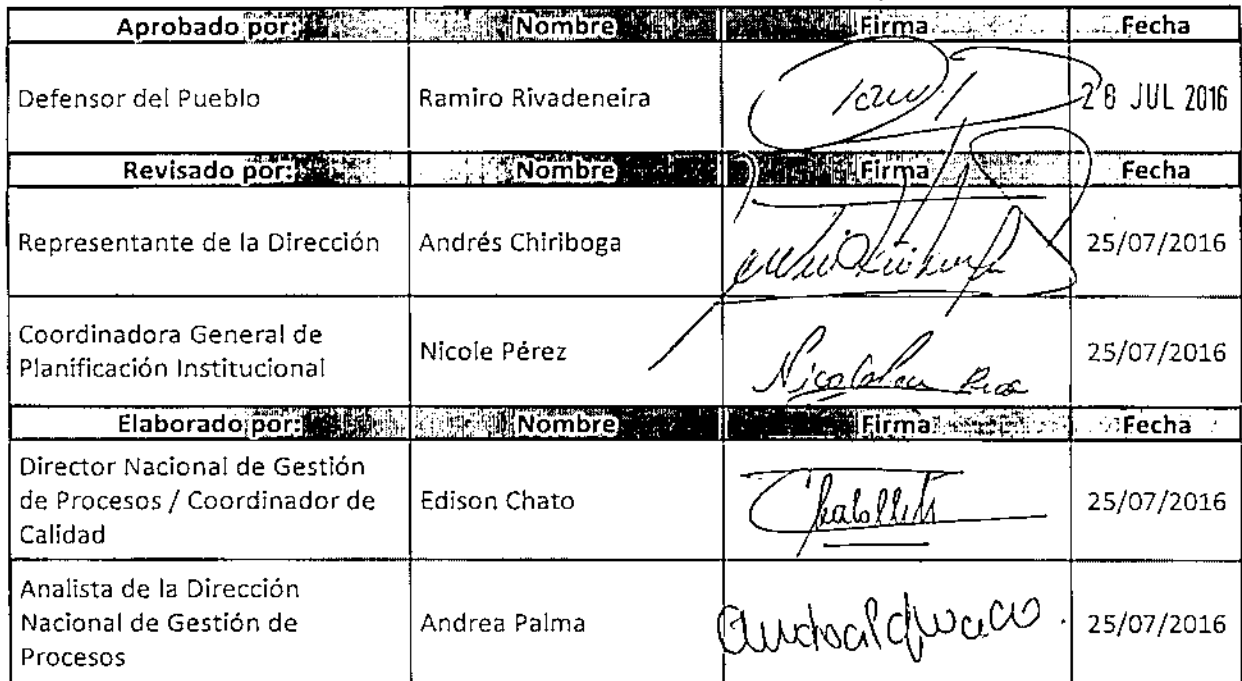 Aprobado por: Nombre Firma Fecha
Defensor del Pueblo Ramiro Rivadeneira 28 JUL 2016
Revisado por: Nombre Firma Fecha
Representante de la Dirección Andrés Chiriboga 25/07/2016
Coordinadora General de
Planificación Institucional Nicole Pérez 25/07/2016
Elaborado por: Nombre Firma Fecha
Director Nacional de Gestión
de Procesos / Coordinador de Edison Chato 25/07/2016
Calidad
Analista de la Dirección
Nacional de Gestión de Andrea Palma 25/07/2016
Procesos